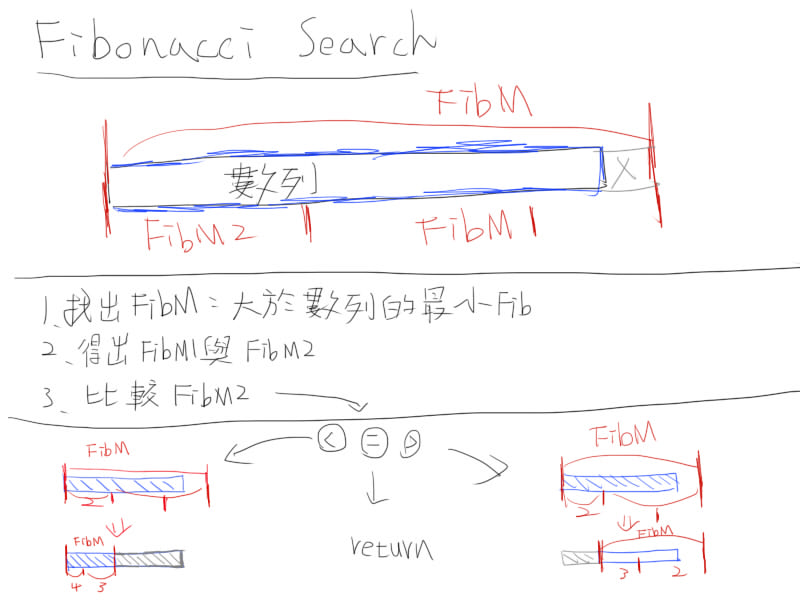 Fibonacci Search
FibM
數列 X
FibM2 FibM1
1、找出FibM：大於數列的最小Fib
2、得出FibM1與FibM2
3、比較FibM2
< = >
FibM
2 1
FibM
4 3
return
FibM
2 1
FibM
3 2